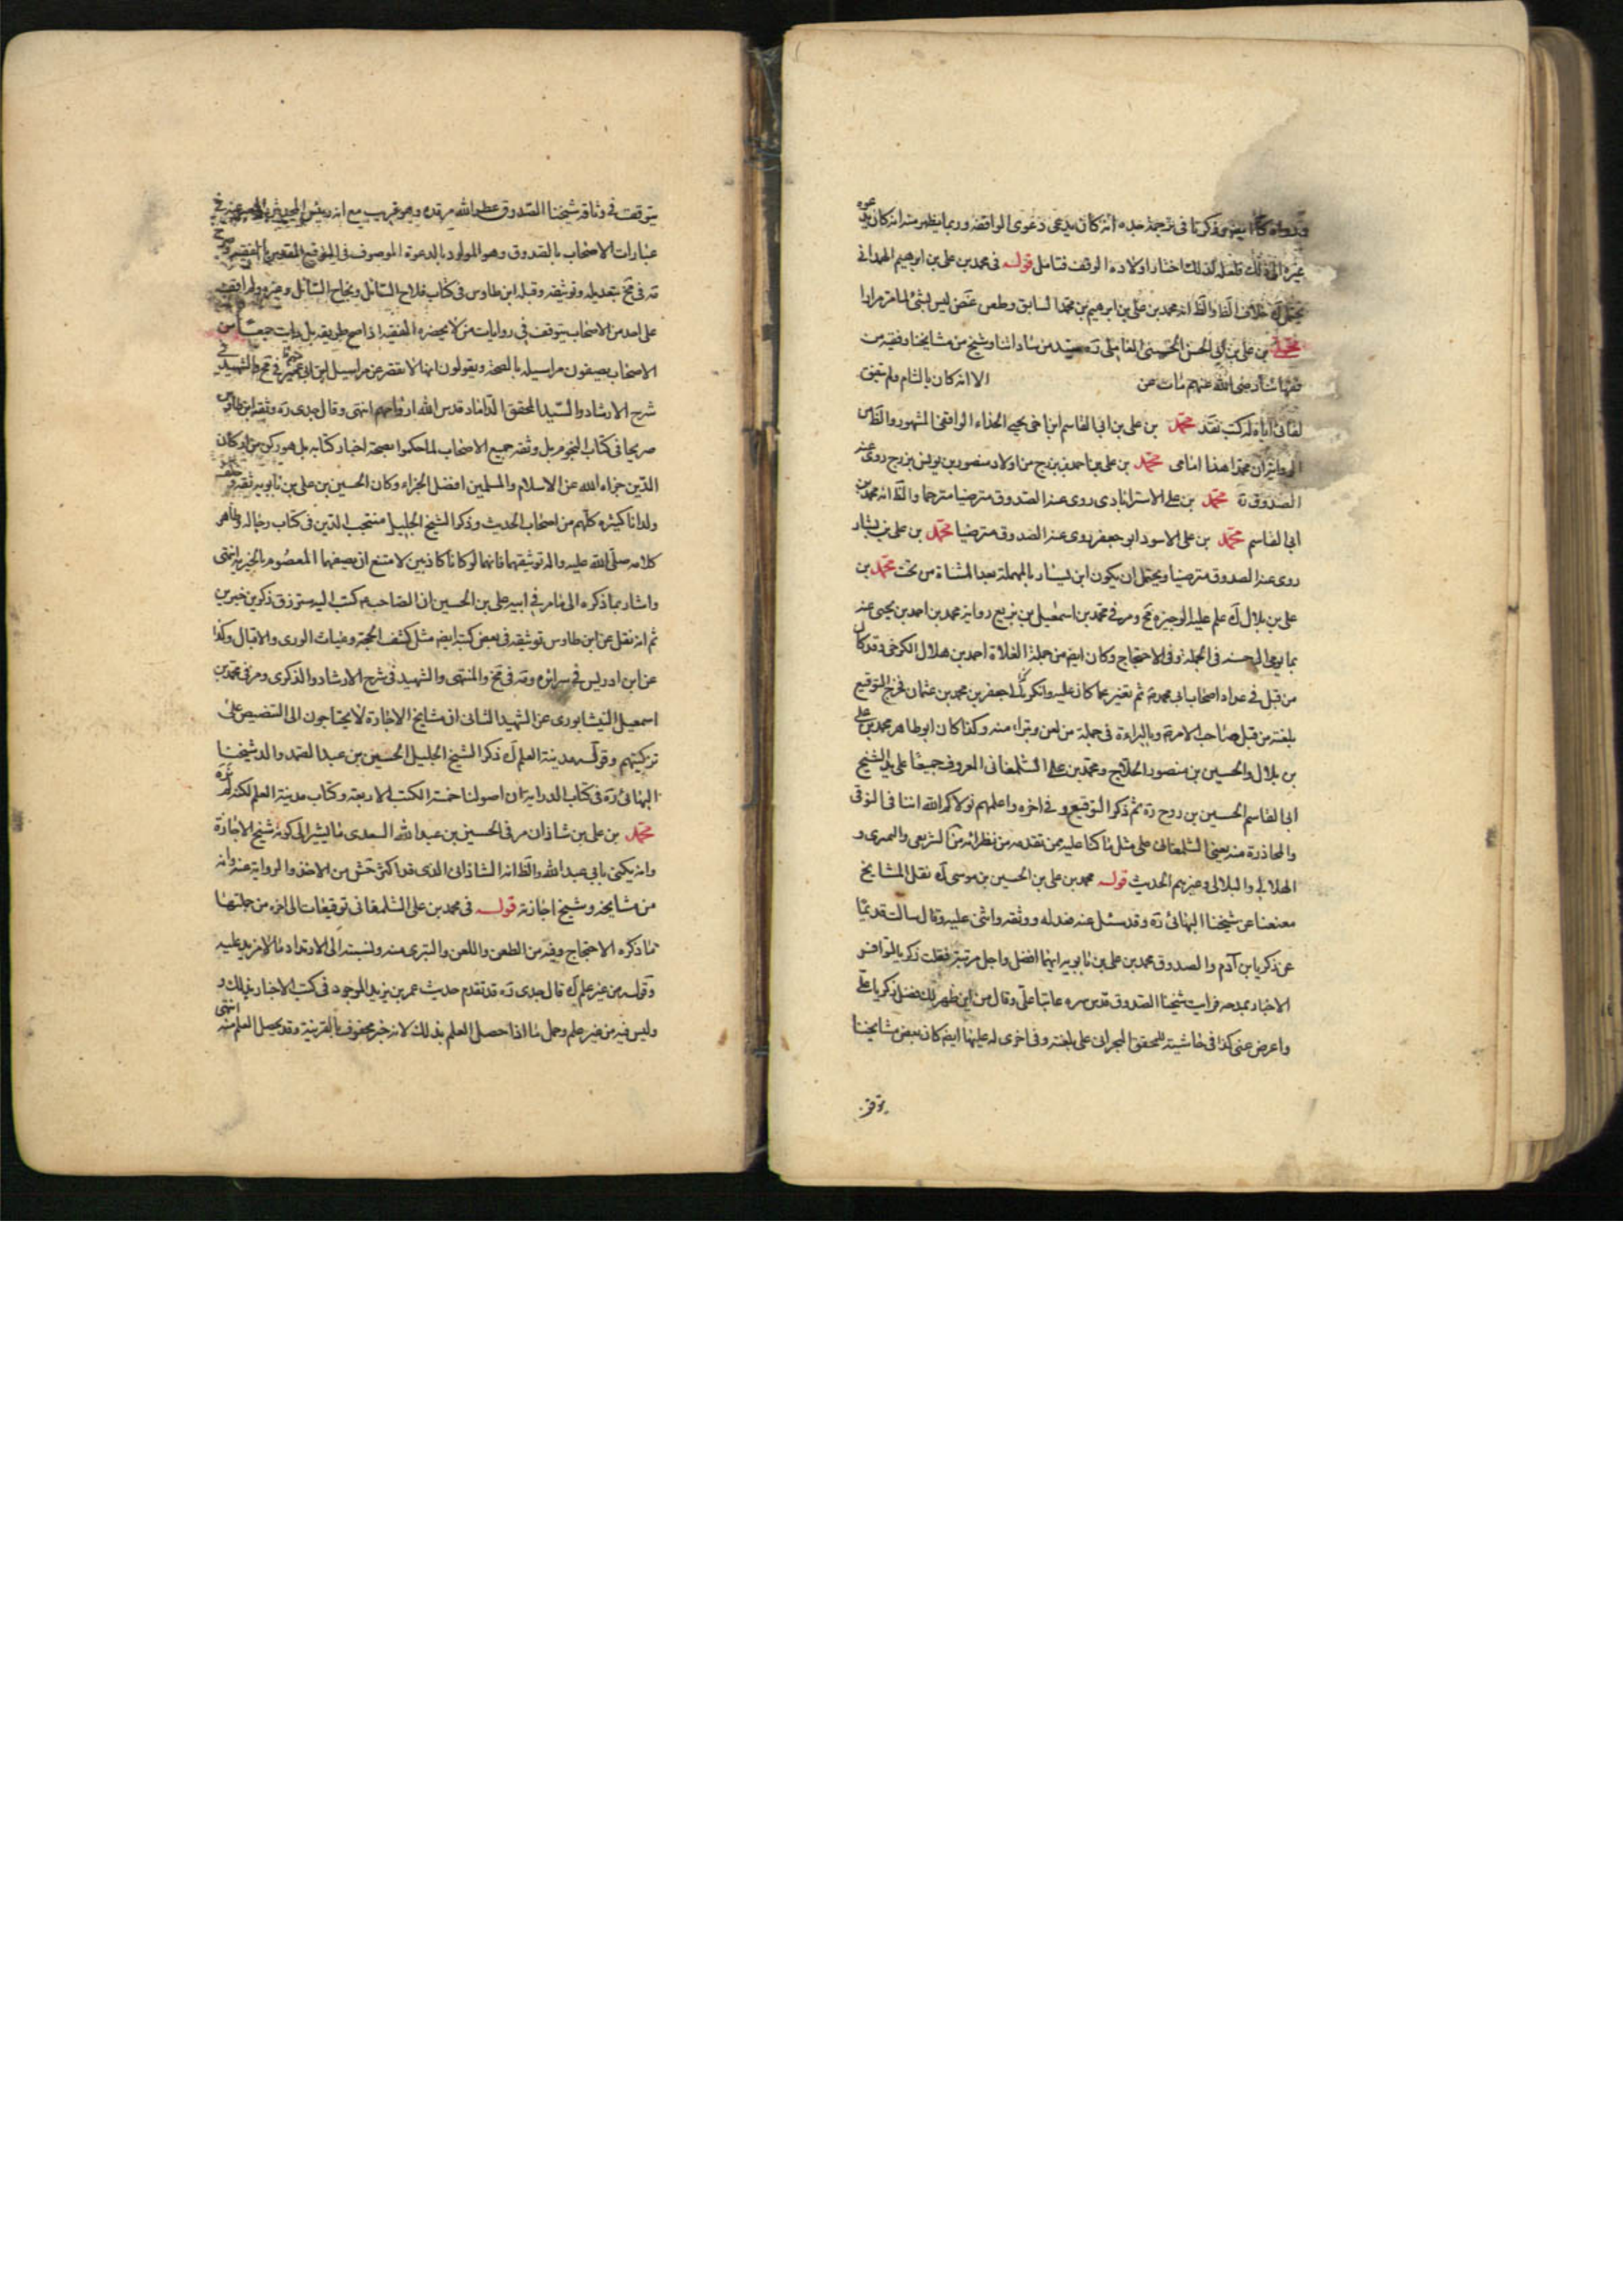 ذكرنا فى ترجمة جده انه كان يدعى دعوى الواقفة وربما يظهر منه انه كان يدعو
غيره الى ذلك فلعله لذلك اختار اولاده الوقف فتامل قوله فى محمد بن على بن ابرهيم الهمدانى
يحتمل خلاف الظ والظ انه محمد بن على بن ابرهيم بن محمد السابق وطعن غض ليس بشئ لما مر مرارا
محمد بن على بن ابى الحسن الحسينى العاملى ره سيد من ساداتنا وشيخ من مشايخنا وفقيه من
فقهائنا رضى الله عنهم مات عن الا انه كان بالشام ولم يتفق
لقائى اياه له كتب نقد محمد بن على بن ابى القاسم ابن اخى يحيى الحذاء الواقفى المشهور والظ من
الرواية ان محمدا هذا امامى محمد بن على بن احمد بن بزرج من اولاد منصور بن يونس بزرج روى عنه
الصدوق ره محمد بن على الاسترابادى روى عنه الصدوق مترضيا مترحما والظ انه محمد بن
ابى القاسم محمد بن على الاسود ابو جعفر روى عنه الصدوق مترضيا محمد بن على بن بشار
روى عنه الصدوق مترضيا ويحتمل ان يكون ابن يسار بالمهملة بعد المثناة من تحت محمد بن
على بن بلال ك علم عليه الوجيزة صح ومر فى محمد بن اسمعيل بن بزيع رواية محمد بن احمد بن يحيى عنه
بما يومى الى حسنه فى الجملة وفى الاحتجاج وكان ايضا من جملة الغلاة احمد بن هلال الكرخى وقد كان
من قبل فى عداد اصحاب ابى محمد ع ثم تغير عما كان عليه وانكر بابية ابى جعفر بن محمد بن عثمان فخرج التوقيع
بلعنه من قبل صاحب الامر ع وبالبراءة فى جملة من لعن وتبراء منه وكذا كان ابو طاهر محمد بن على
بن بلال والحسين بن منصور الحلاج ومحمد بن على الشلمغانى المعروف جميعا على يد الشيخ
ابى القاسم الحسين بن روح ره ثم ذكر التوقيع وفى اخره واعلمهم تولاكم الله اننا فى التوقى
والمحاذرة منه يعنى الشلمغانى على مثل ما كنا عليه ممن تقدمه من نظرائه من الشريعى والنميرى و
الهلالى والبلالى وغيرهم الحديث قوله محمد بن على بن الحسين بن موسى ك نقل المشايخ
معنعنا عن شيخنا البهائى ره وقد سئل عنه فعدله ووثقه واثنى عليه وقال سالت قديما
عن زكريا بن آدم والصدوق محمد بن على بن بابويه ايهما افضل واجل مرتبة فقلت زكريا لتوافر
الاخبار بمدحه فرايت شيخنا الصدوق قدس سره عاتبا على وقال من اين ظهر لك فضل زكريا على
واعرض عنى كذا فى حاشيته للمحقق البحرانى على بلغته وفى اخرى له عليها ايضا كان بعض مشايخنا
يتوقف
يتوقف فى وثاقة شيخنا الصدوق عطر الله مرقده وهو غريب مع انه رئيس المحدثين المعبر عنه فى
عبارات الاصحاب بالصدوق وهو المولود بالدعوة الموصوف فى التوقيع المقدس بالفقيه وصرح
مة فى مخ بتعديله وتوثيقه وقبله ابن طاوس فى كتاب فلاح السائل ونجاح السائل وغيره ولم اقف
على احد من الاصحاب يتوقف فى روايات من لا يحضره الفقيه اذا صح طريقه بل رايت جمعا من
الاصحاب يصفون مراسيله بالصحة ويقولون انها لا تقصر عن مراسيل ابن ابى عمير منهم مة فى مخ والشهيد فى
شرح الارشاد والسيد المحقق الداماد قدس الله ارواحهم انتهى وقال جدى ره وثقه ابن طاوس
صريحا فى كتاب النجوم بل وثقه جميع الاصحاب لما حكموا بصحة اخبار كتابه بل هو ركن من اركان
الدين جزاه الله عن الاسلام والمسلمين افضل الجزاء وكان الحسين بن على بن بابويه ثقة وخلف
ولدانا كثيرة كلهم من اصحاب الحديث وذكر الشيخ الجليل منتجب الدين فى كتاب رجاله وظاهر
كلامه صلى الله عليه واله توثيقهما فانهما لو كانا كاذبين لامتنع ان يصفهما المعصوم بالخيرية انتهى
واشار بما ذكره الى ما مر فى ابيه على بن الحسين ان الصاحب ع كتب اليه سترزق ذكرين خيرين
ثم انه نقل عن ابن طاوس توثيقه فى بعض كتبه ايضا مثل كشف المحجة وغياث الورى والاقبال وكذا
عن ابن ادريس فى سرائره ومة فى مخ والمنتهى والشهيد فى شرح الارشاد والذكرى ومر فى محمد بن
اسمعيل النيشابورى عن الشهيد الثانى ان مشايخ الاجازة لا يحتاجون الى التنصيص على
تزكيتهم وقوله مدينة العلم ك ذكر الشيخ الجليل الحسين بن عبد الصمد والد شيخنا
البهائى ره فى كتاب الدراية ان اصولنا خمسة الكتب الاربعة وكتاب مدينة العلم لكنه لم نره
محمد بن على بن شاذان مر فى الحسين بن عبد الله السعدى ما يشير الى كونه شيخ الاجازة
وانه يكنى بابى عبد الله والظ انه الشاذانى الذى قد اكثر جش من الاخذ والرواية عنه وانه
من مشايخه وشيخ اجازته قوله فى محمد بن على الشلمغانى توقيعات الى اخره من جملتها
ما ذكره الاحتجاج وفيه من الطعن واللعن والتبرى منه ونسبته الى الارتداد ما لا مزيد عليه
وقوله من غير علم ك قال جدى ره قد تقدم حديث عمر بن يزيد الموجود فى كتب الاخبار غير ذلك و
وليس فيه من غير علم وحمل ما اذا حصل العلم بذلك لانه خبر محفوف بالقرينة وقد يحصل العلم منه انتهى